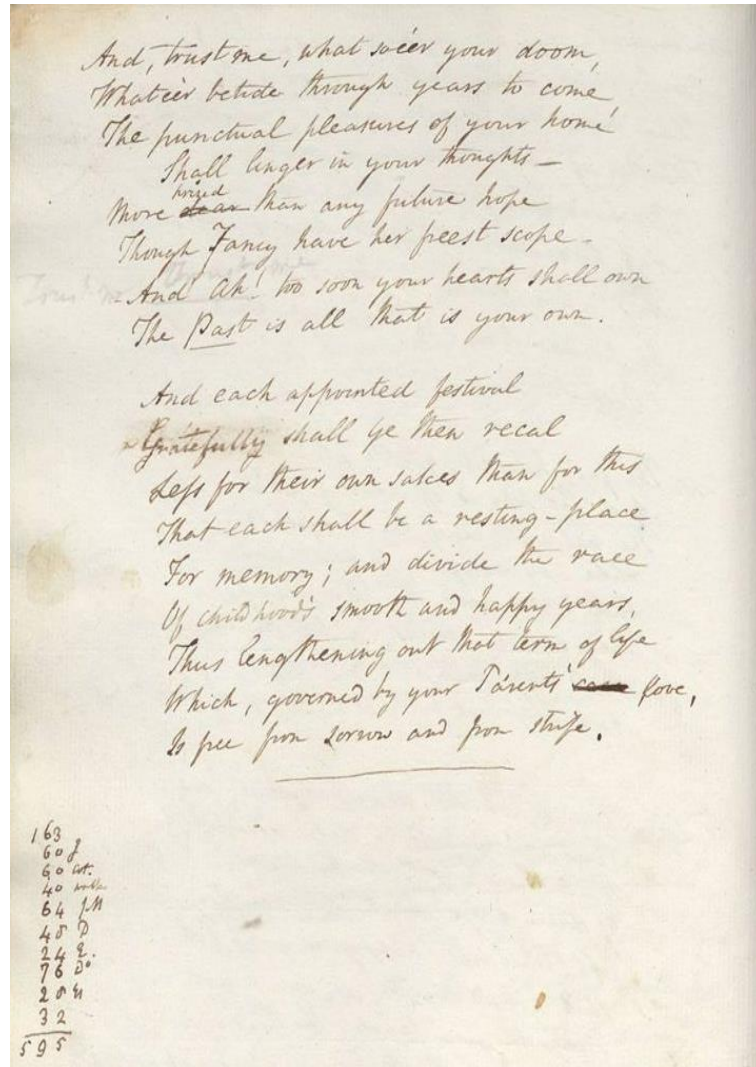 And, trust me, what soe'er your doom,
Whate'er betide through years to come,
The punctual pleasures of your home
Shall linger in your thoughts –
prized
More dear than any future hope
Though Fancy have her freest scope –
And Ah! too soon your hearts shall own
The Past is all that is your own.
And each appointed festival
Gratefully shall ye then recal
Less for their own sakes than for this
That each shall be a resting-place
For memory; and divide the race
Of childhood's smooth and happy years,
Thus lengthening out that term of life
Which, governed by your Parents' love,
Is free from sorrow and from strife.
163
60 J
60
40
64 JM
48 D
24 E.
76 Do
28
32
595